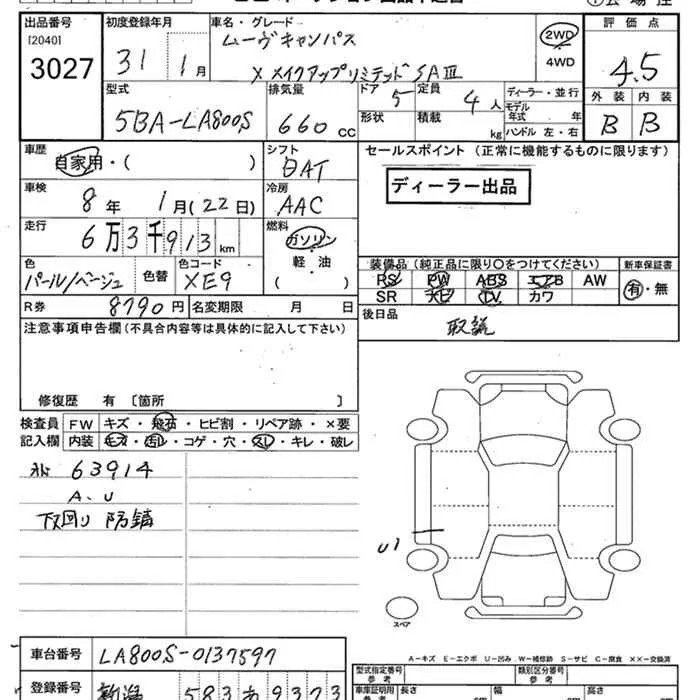 出品番号 初度登録年月 車名・グレード 評価点
[2040]
3027
31 1月
ムーヴキャンバス
X メイクアップリミテッド SAⅢ
2WD
4WD
4.5
型式 排気量 ドア 定員 ディーラー・並行 外装 内装
5BA-LA800S 660 CC 5 4人 モデル年式 年
形状 積載 kg ハンドル 左・右 B B
車歴 シフト セールスポイント (正常に機能するものに限ります)
自家用・( ) DAT
ディーラー出品
車検 冷房
8年 1月(22日) AAC
走行 燃料
6万3千913km ガソリン
軽・油
( )
色 色替 色コード
パール/ベージュ XE9
装備品 (純正品に限り○をつけてください) 新車保証書
PS PW ABS エアB AW 有・無
SR ナビ TV カワ
R券 8790円 名変期限 月 日
後日品
取説
注意事項申告欄(不具合内容等は具体的に記入して下さい)
修復歴 有 [箇所 ]
検査員 FW キズ・飛石・ヒビ割・リペア跡・×要
記入欄 内装 キズ・汚レ・コゲ・穴・スレ・キレ・破レ
63914
A、U
下回り 防錆
U1
スペア
A-キズ E-エクボ U-凹み W-補修跡 S-サビ C-腐食 ××-交換済
車台番号 LA800S-0137597
登録番号 新潟 583 あ 9373
型式指定番号 類別区分番号
参考 参考
車庫証明用 長さ 幅 高さ